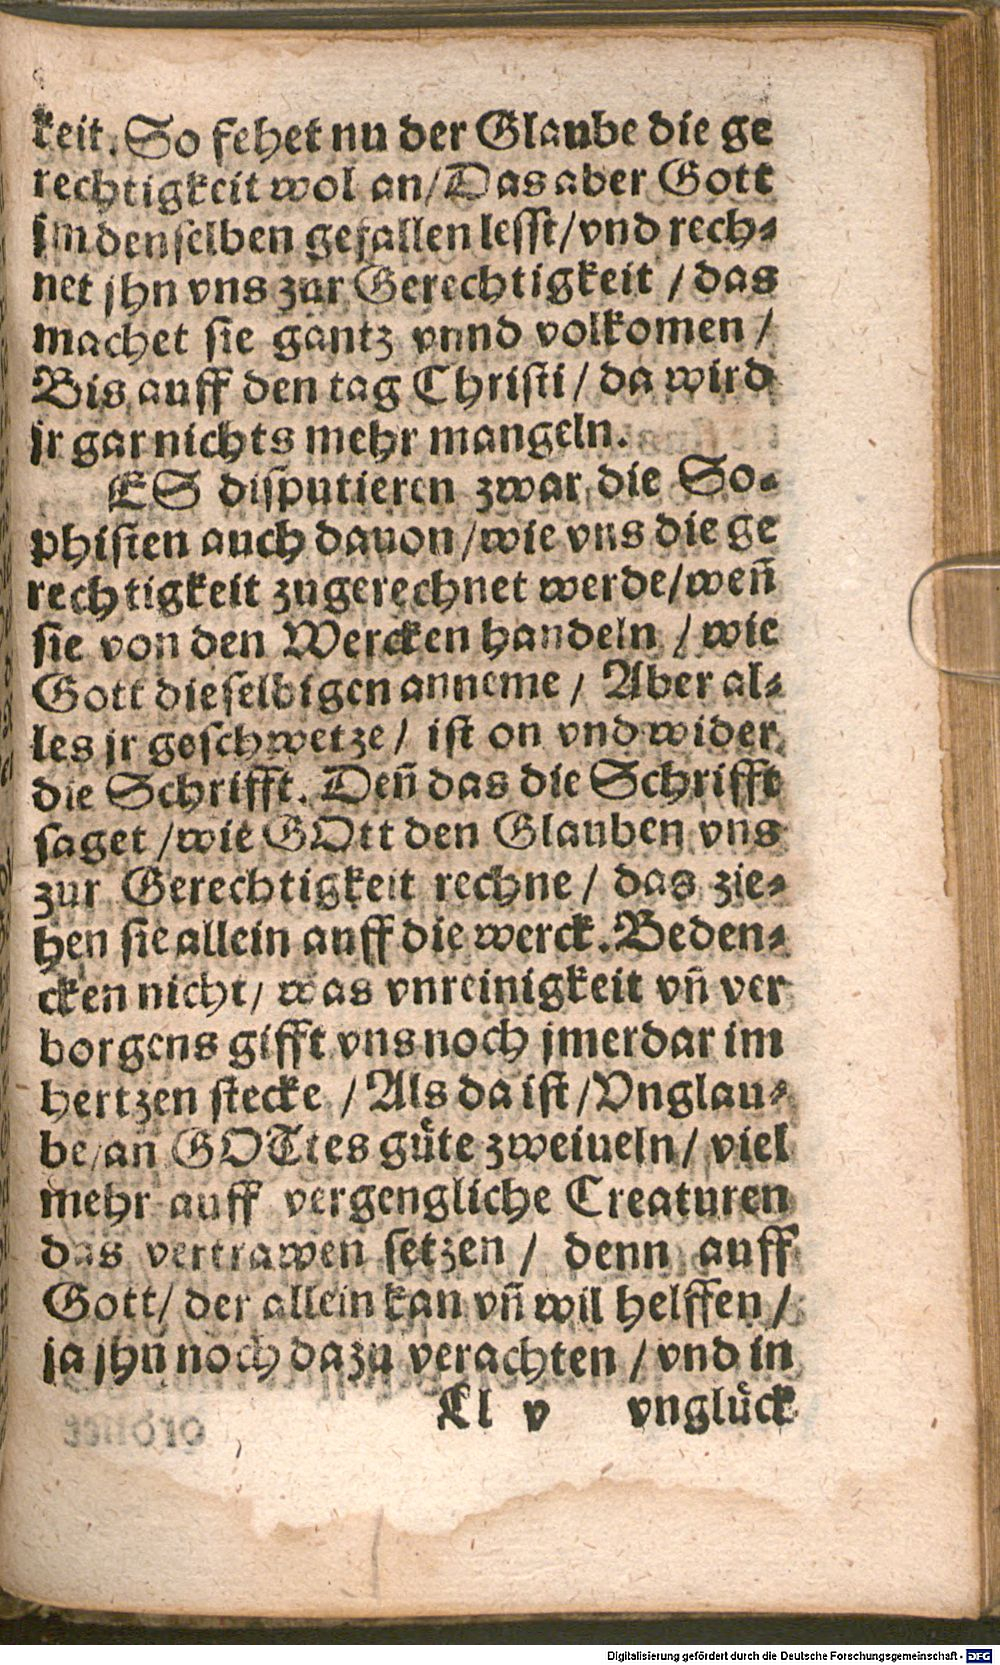 keit. So fehet nu der Glaube die ge
rechtigkeit wol an/Das aber Gott
im denselben gefallen lesst/vnd rech-
net jhn vns zur Gerechtigkeit / das
machet sie gantz vnnd volkomen /
Bis auff den tag Christi / da wird
jr gar nichts mehr mangeln.
ES disputieren zwar die So-
phisten auch dauon /wie vns die ge
rechtigkeit zugerechnet werde/weñ
sie von den Wercken handeln / wie
Gott dieselbigen anneme / Aber al-
les jr geschwetze / ist on vnd wider
die Schrifft. Deñ das die Schrifft
saget /wie GOtt den Glauben vns
zur Gerechtigkeit rechne / das zie-
hen sie allein auff die werck. Beden-
cken nicht/ was vnreinigkeit vñ ver
borgens gifft vns noch jmerdar im
hertzen stecke / Als da ist /Vnglau-
be/an GOTtes güte zweiueln/ viel
mehr auff vergengliche Creaturen
das vertrawen setzen / denn auff
Gott/ der allein kan vñ wil helffen /
ja jhn noch dazu verachten / vnd in
Ll v vnglück
Digitalisierung gefördert durch die Deutsche Forschungsgemeinschaft - DFG